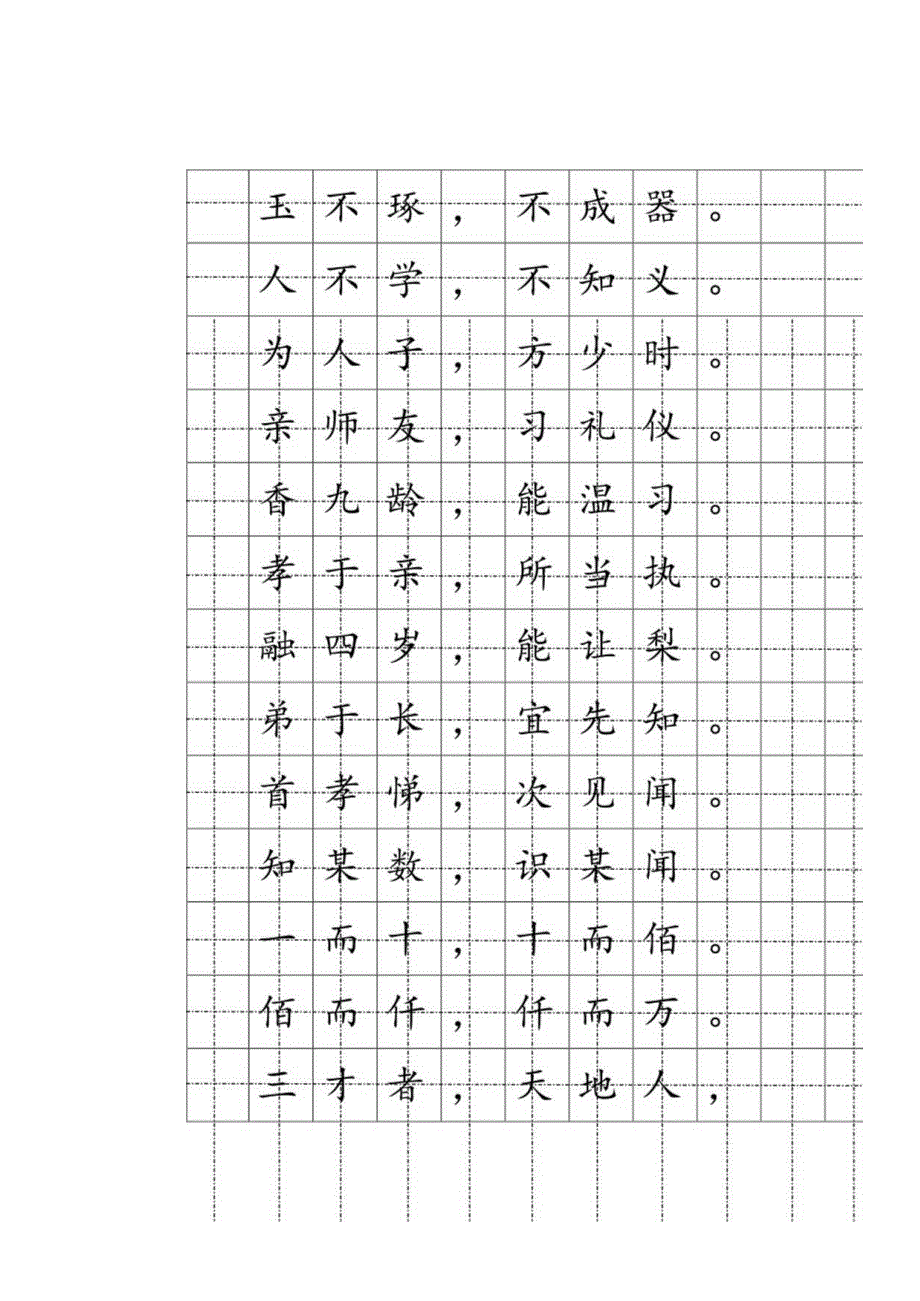 玉不琢，不成器。
人不学，不知义。
为人子，方少时。
亲师友，习礼仪。
香九龄，能温习。
孝于亲，所当执。
融四岁，能让梨。
弟于长，宜先知。
首孝悌，次见闻。
知某数，识某闻。
一而十，十而佰。
佰而仟，仟而万。
三才者，天地人，